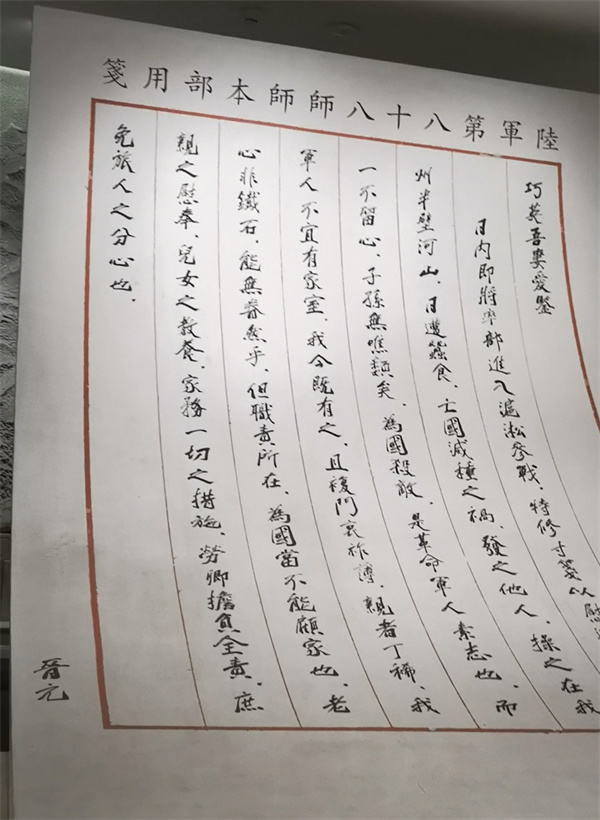 陸軍第八十八師師本部用箋
巧英吾妻愛鑒
日內即將率部進入滬淞參戰、特修寸箋以慰
州半壁河山、日遭蠶食、亡國滅種之禍、發之他人、操之在我
一不留心、子孫無噍類矣、為國殺敵、是革命軍人素志也、而
軍人不宜有家室、我今既有之、且複門衰祚薄、親者丁稀、我
心非鐵石、能無眷然乎、但職責所在、為國當不能顧家也、老
親之慰奉、兒女之教養、家務一切之措施、勞卿擔負全責、庶
免旅人之分心也、
晉元